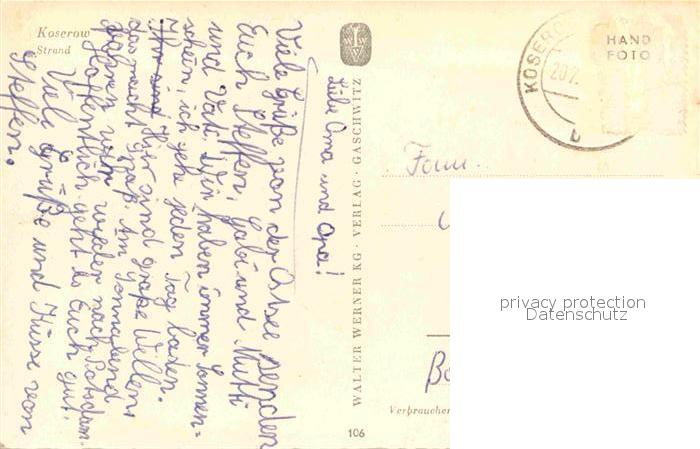 Koserow
Strand
Liebe Oma und Opa!
Viele Grüße von der Ostsee senden
Euch Steffen, Gabi und Mutti
und Vati. Wir haben immer Sonnen=
schein, ich gehe jeden Tag baden.
Hier sind große Wellen,
das macht Spaß. Am Sonnabend
fahren wir wieder nach Potsdam.
Hoffentlich geht es Euch gut.
Viele Grüße und Küsse von
Steffen.
WALTER WERNER KG · VERLAG · GASCHWITZ
106
KOSERO
20.7.
HAND
FOTO
Fam.
Verbraucher
privacy protection
Datenschutz